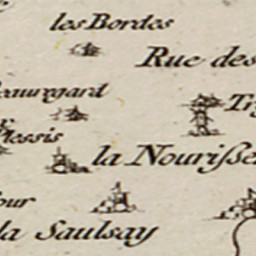 les Bordes
Rue des
eauregard
Plessis
la Nouriſſe
our
la Saulsay